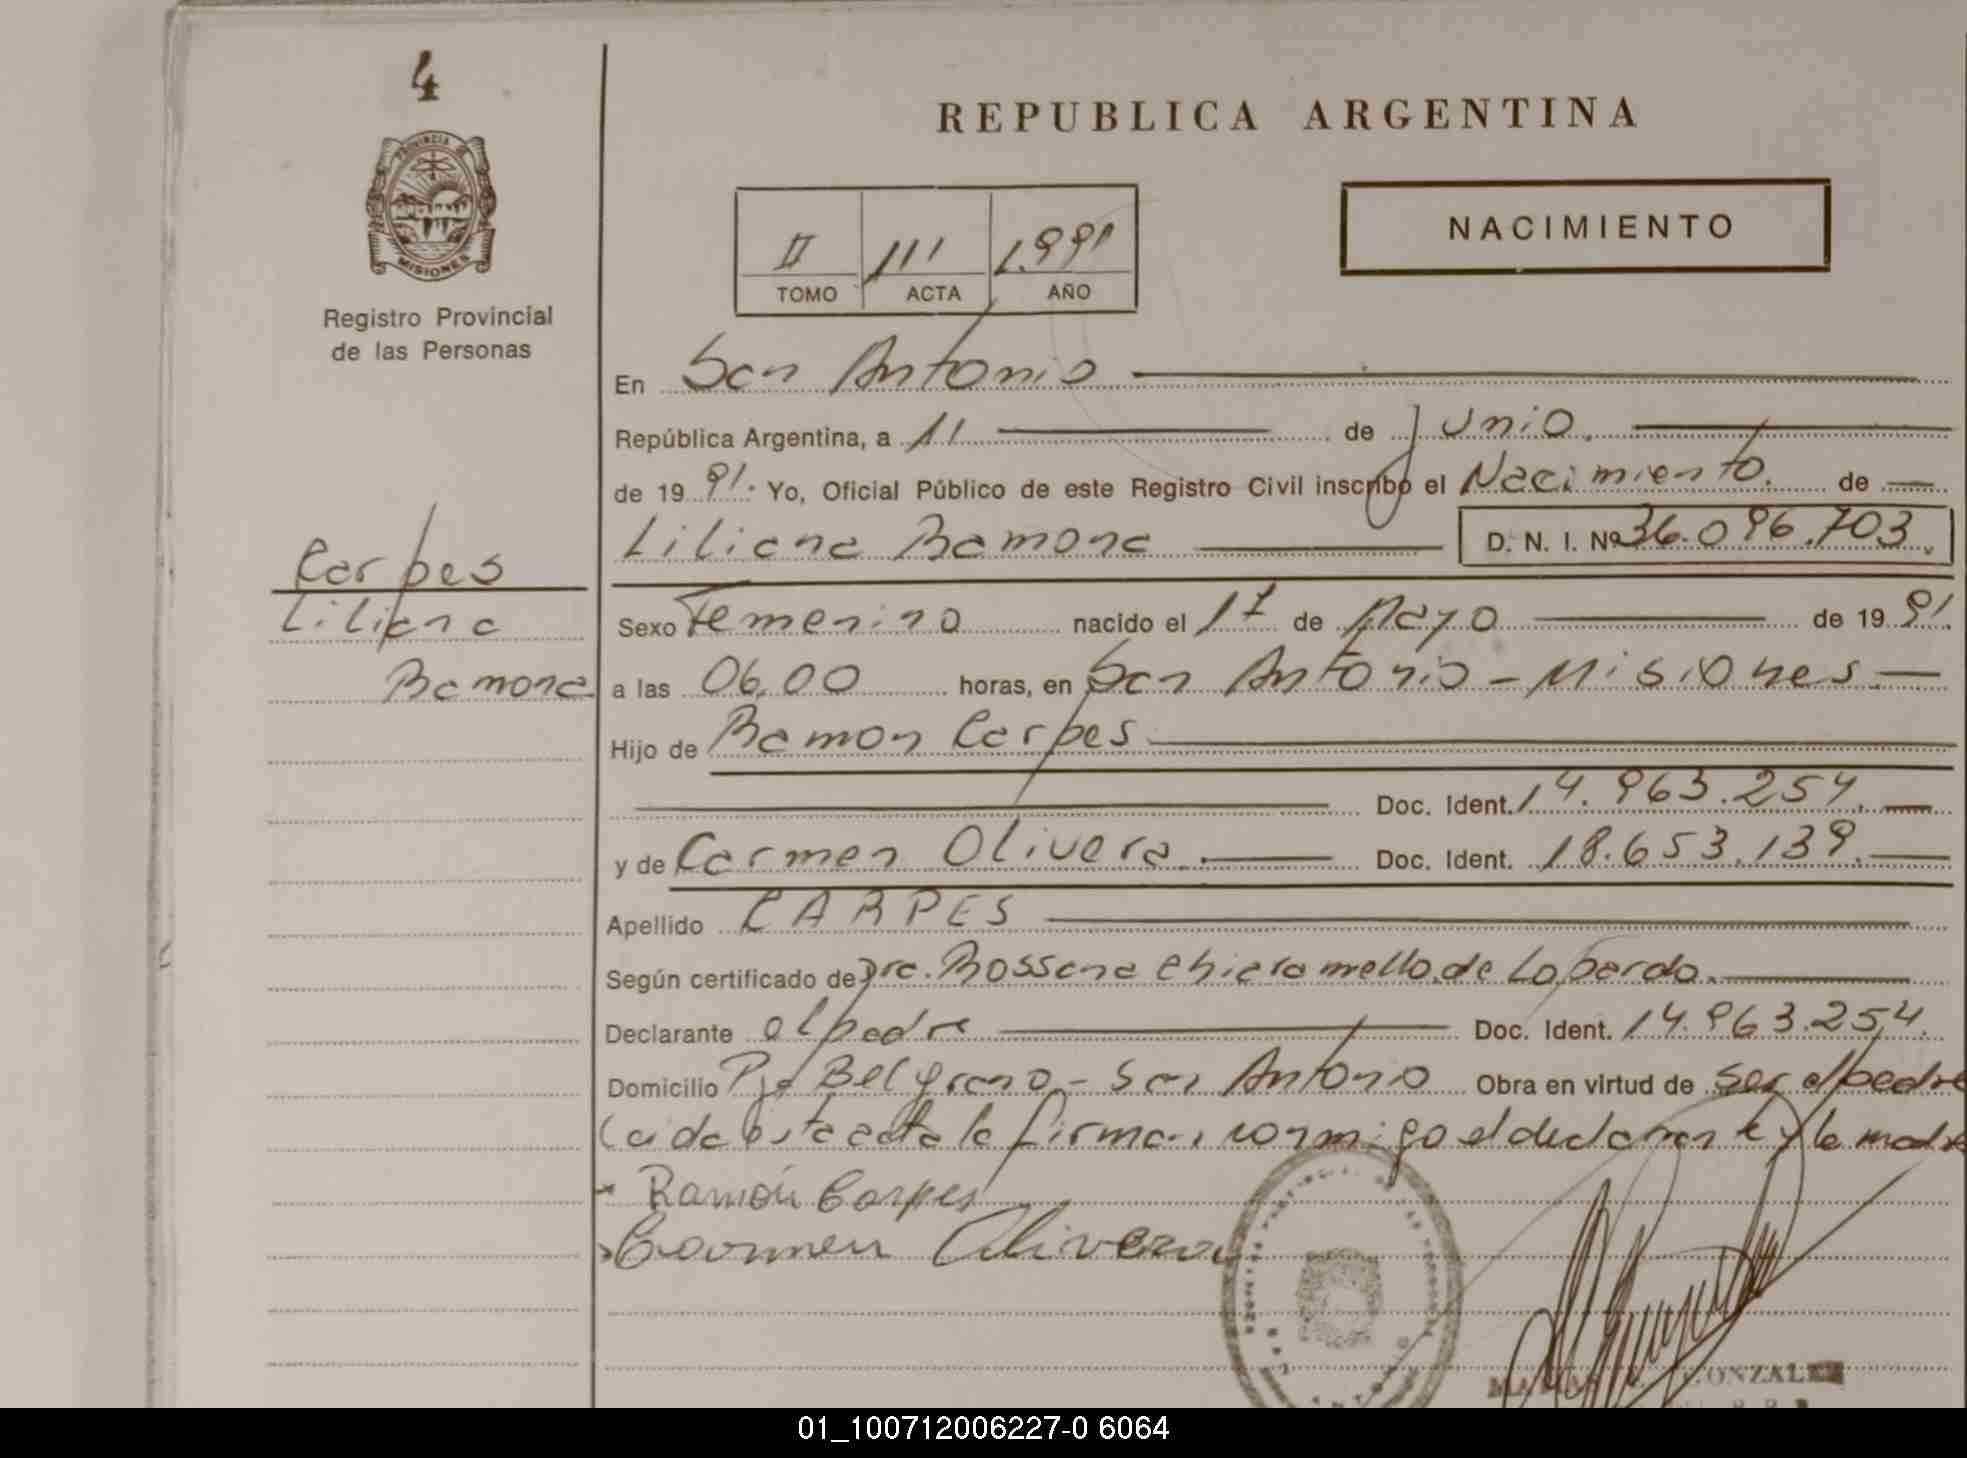 4
PROVINCIA DE
MISIONES
Registro Provincial
de las Personas
REPUBLICA ARGENTINA
NACIMIENTO
II 111 1.991
TOMO ACTA AÑO
En San Antonio
República Argentina, a 11 de Junio.
de 1991. Yo, Oficial Público de este Registro Civil inscribo el Nacimiento. de
Liliana Ramona D. N. I. Nº 36.096.703.
Carpes
Liliana
Ramona
Sexo Femenino nacido el 17 de Mayo de 1991.
a las 06,00 horas, en San Antonio - Misiones
Hijo de Ramon Carpes
Doc. Ident. 14.963.254.
y de Carmen Olivera. Doc. Ident. 18.653.139.
Apellido CARPES
Según certificado de Dra. Rossana Chiaramello de Lopardo.
Declarante el padre Doc. Ident. 14.963.254.
Domicilio Pje Belgrano - San Antonio Obra en virtud de ser el padre
Leida esta acta la firman conmigo el declarante y la madre
Ramón Carpes
Carmen Olivera
GONZALEZ
01_100712006227-0 6064